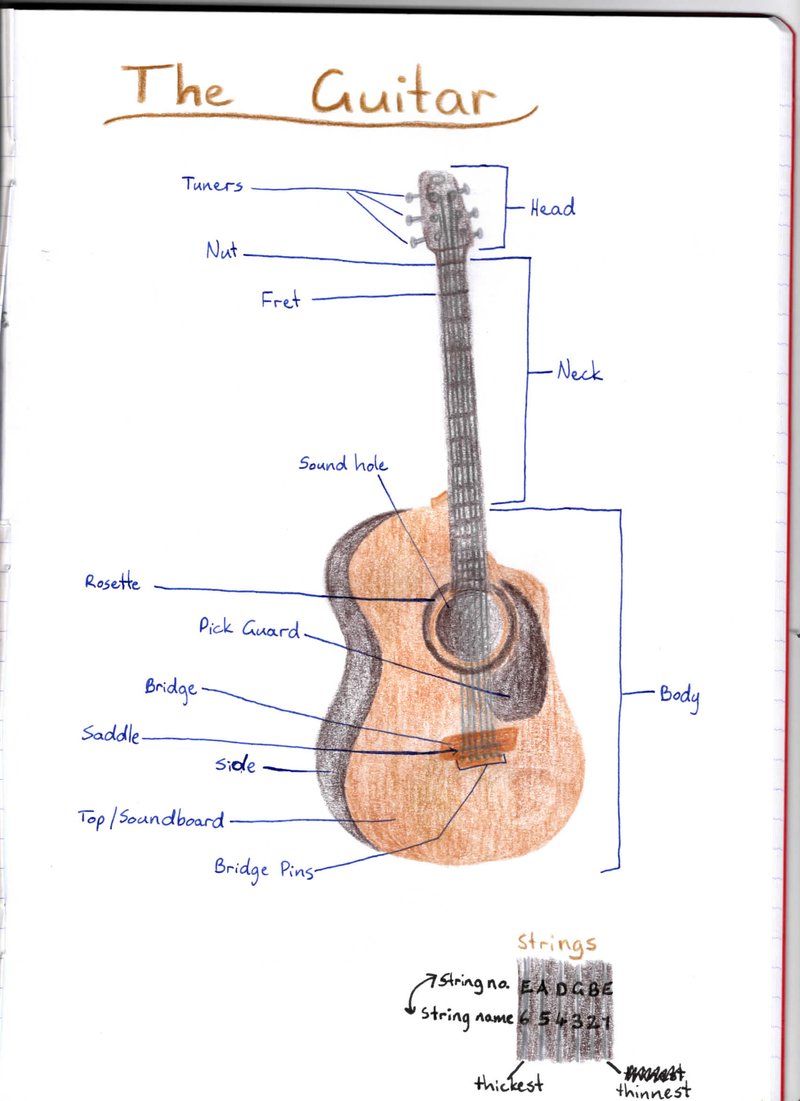 The Guitar
Tuners
Head
Nut
Fret
Neck
Sound hole
Rosette
Pick Guard
Bridge
Body
Saddle
side
Top/Soundboard
Bridge Pins
Strings
String no. E A D G B E
String name 6 5 4 3 2 1
thickest
thinnest